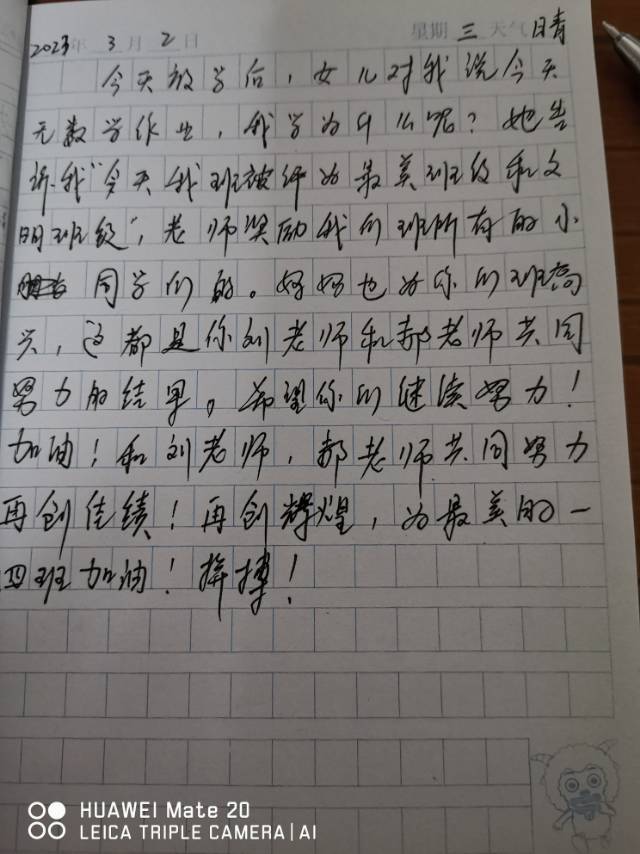 2023年 3月 2日 星期 三 天气 日青
今天放学后，女儿对我说今天
无数学作业，我学为什么呢？她告
诉我“今天我班被评为最美班级和文
明班级”，老师奖励我们班所有的小
同学们的。妈妈也为你们班高
兴，这都是你刘老师和郝老师共同
努力的结果。希望你们继续努力！
加油！和刘老师，郝老师共同努力
再创佳绩！再创辉煌，为最美的一
四班加油！拼搏！
HUAWEI Mate 20
LEICA TRIPLE CAMERA | AI